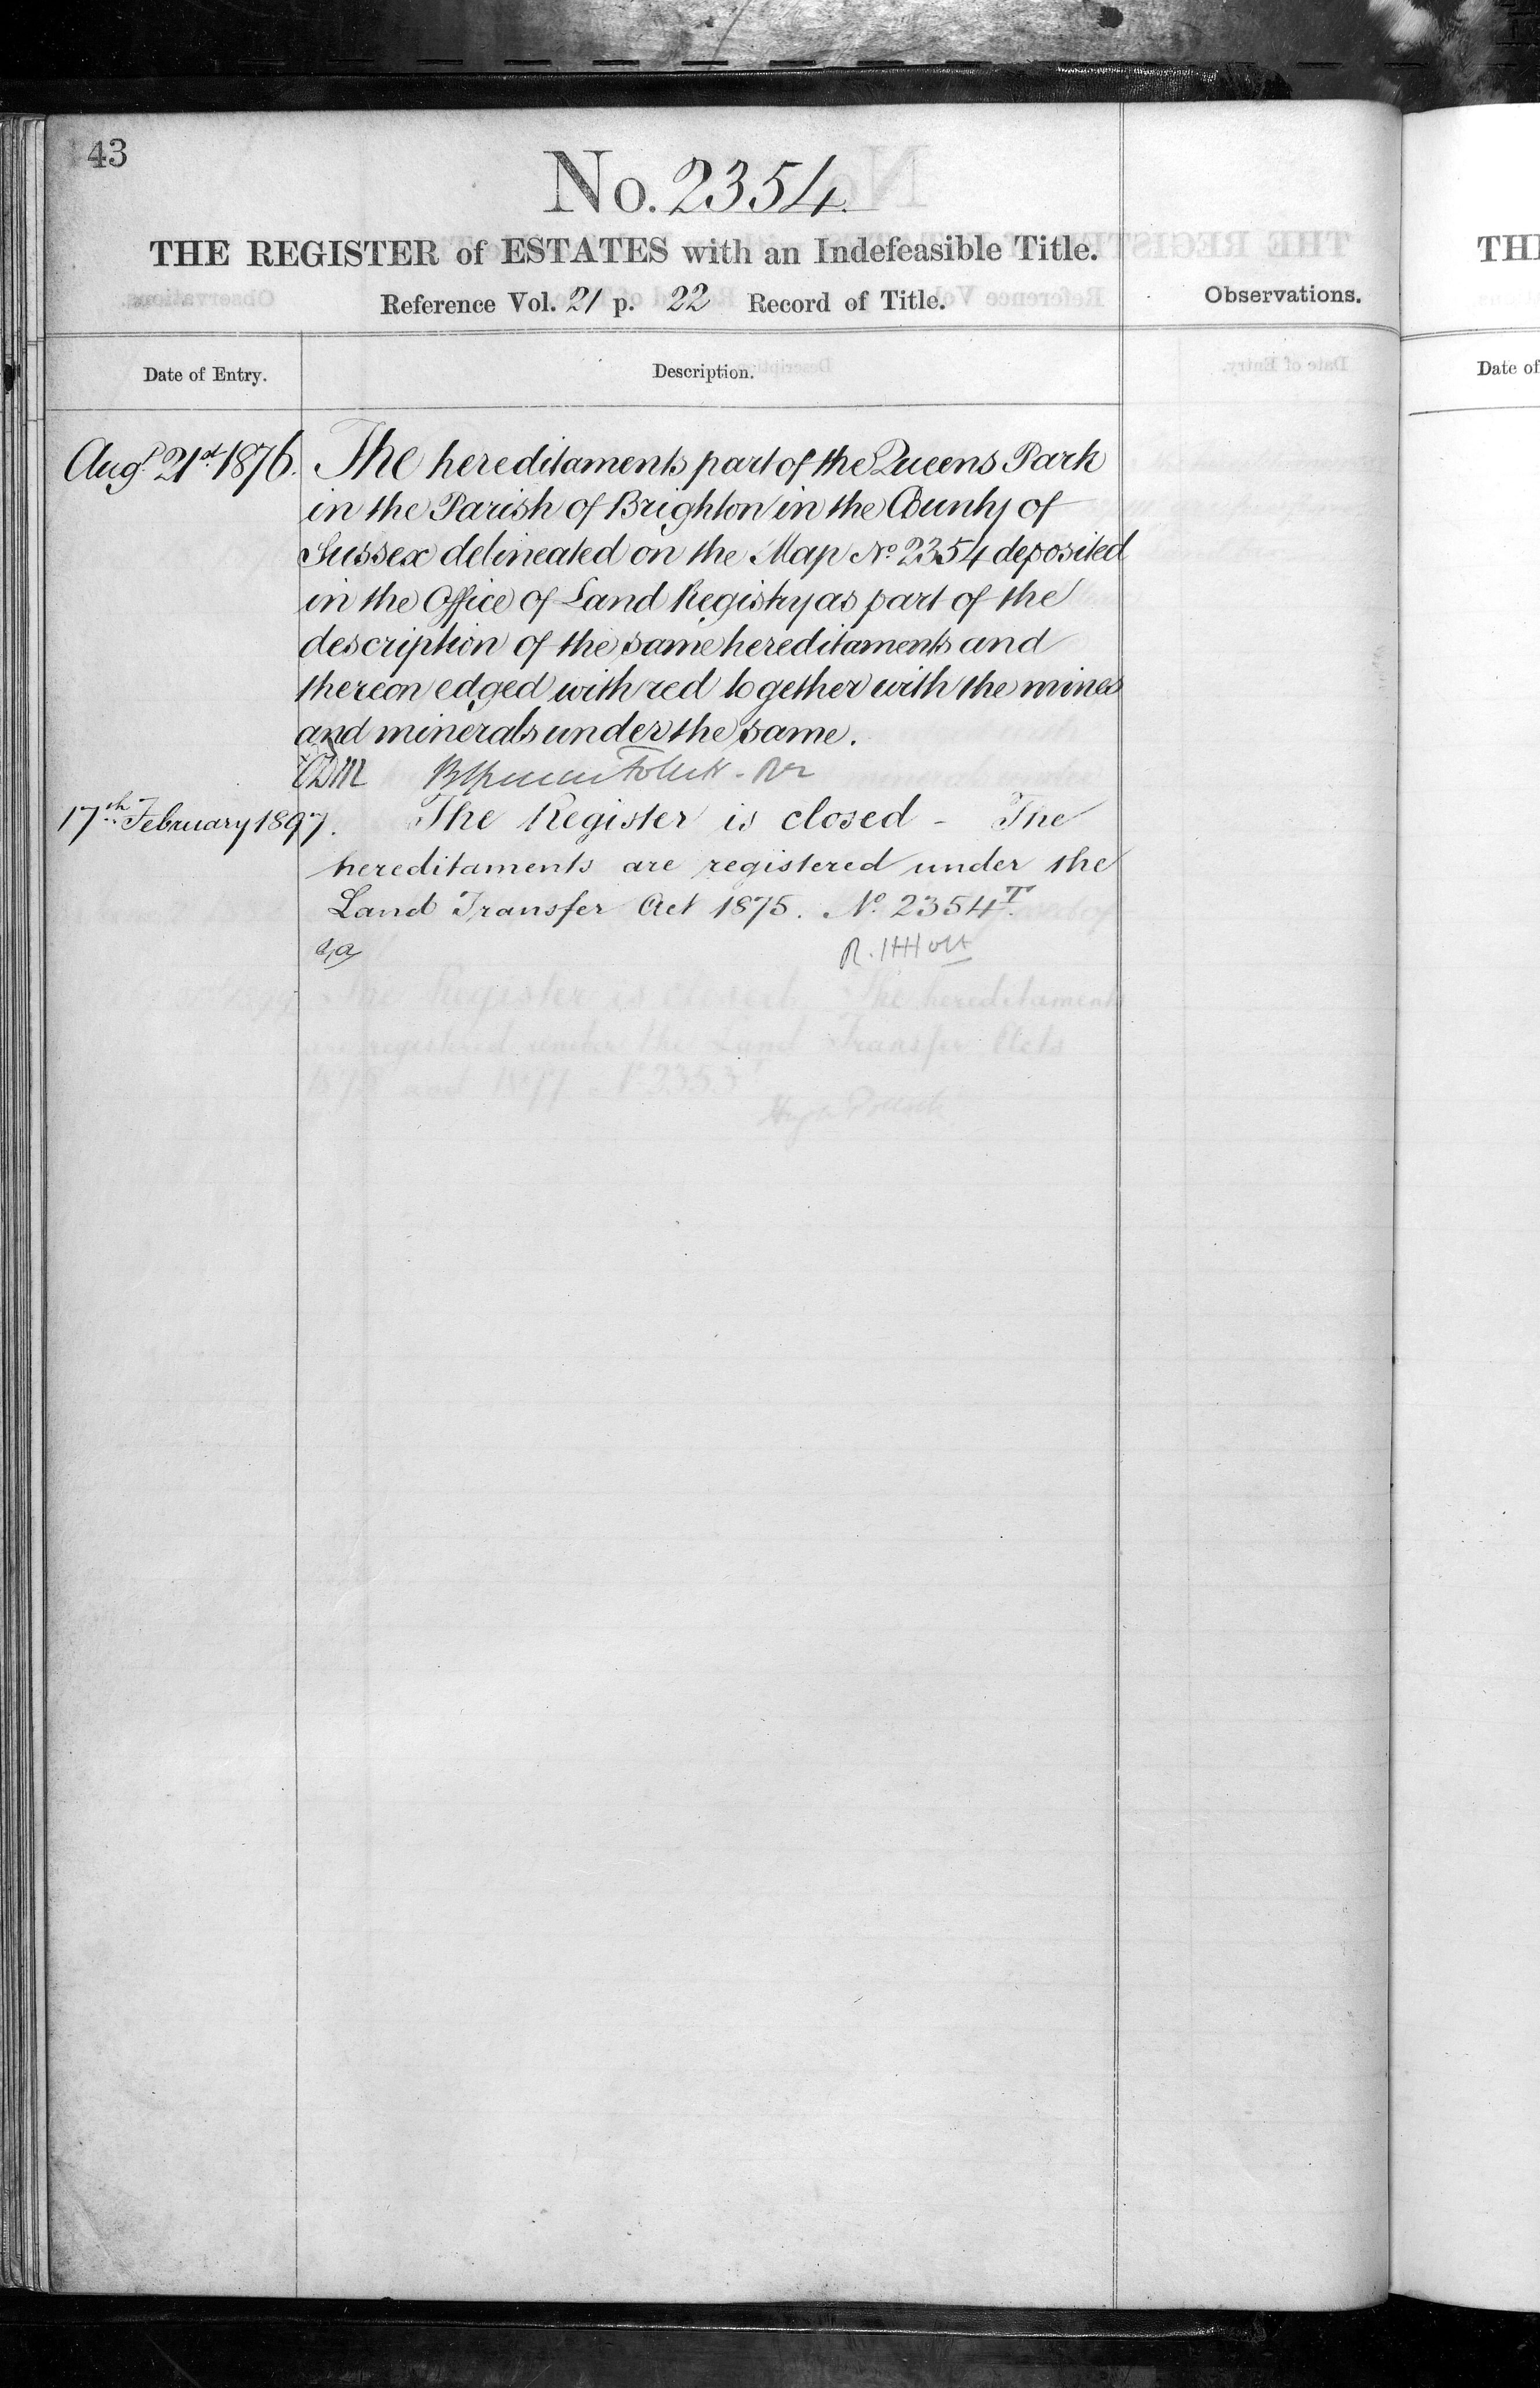 43
No. 2354.
THE REGISTER of ESTATES with an Indefeasible Title.
Reference Vol. 21 p. 22 Record of Title.
Observations.
Date of Entry.
Description.
Augt. 21st 1876. The hereditaments part of the Queens Park
in the Parish of Brighton in the County of
Sussex delineated on the Map No. 2354 deposited
in the Office of Land Registry as part of the
description of the same hereditaments and
thereon edged with red together with the mines
and minerals under the same.
17th February 1897. The Register is closed - The
hereditaments are registered under the
Land Transfer Act 1875. No. 2354T.
R. H Holt
The Register is closed. The hereditaments
are registered under the Land Transfer Acts
1875 and 1897 No. 2353T
Date of